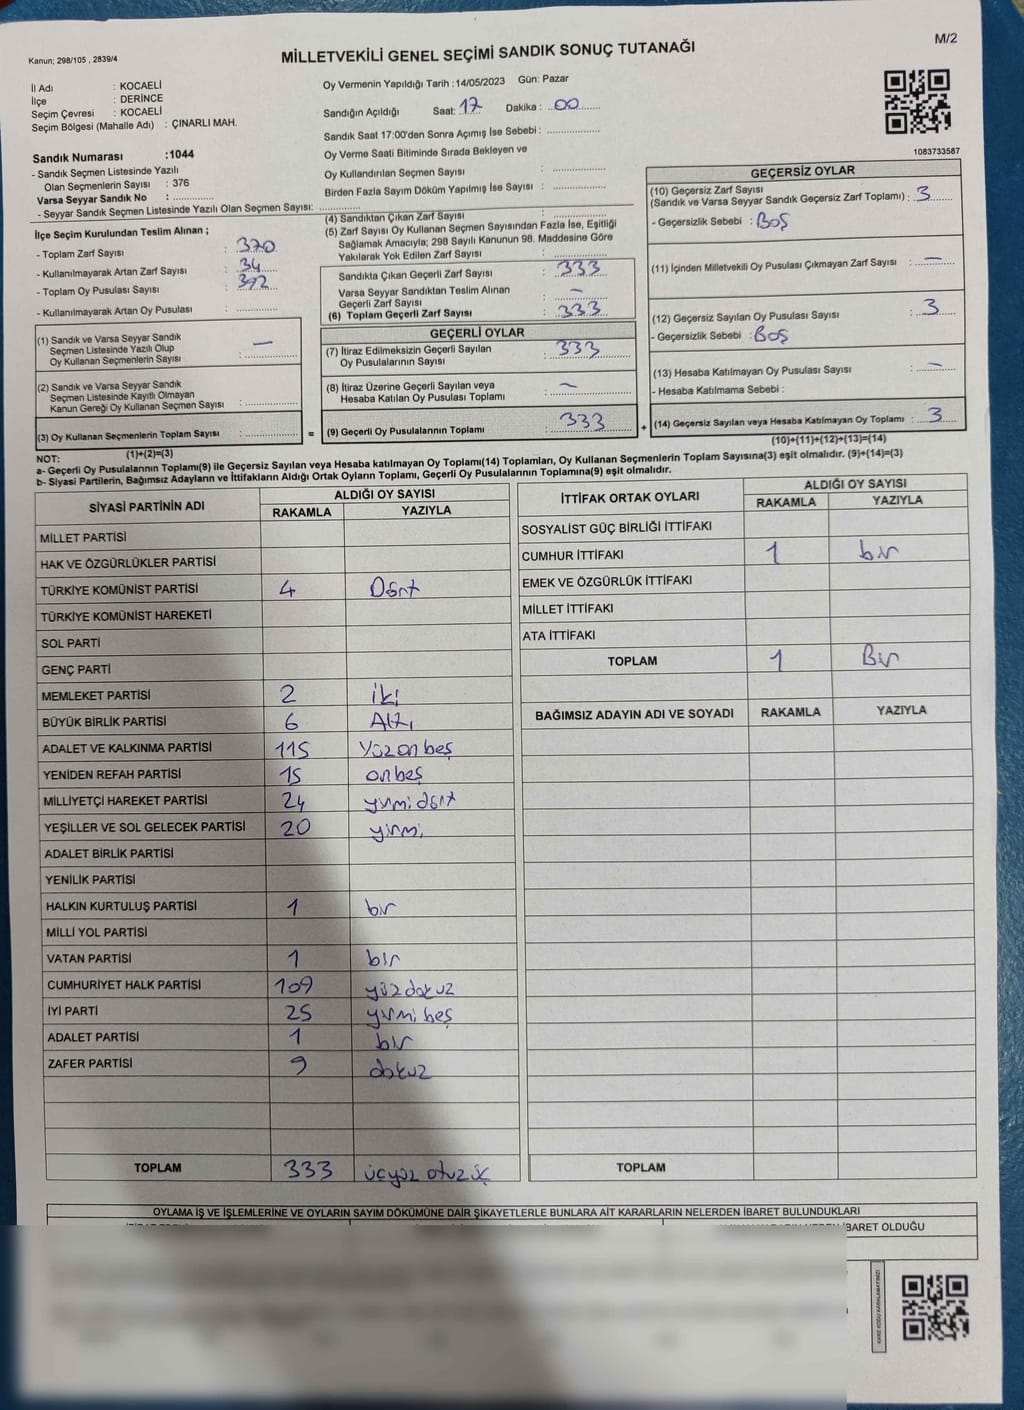 M/2
Kanun; 298/105 , 2839/4
MİLLETVEKİLİ GENEL SEÇİMİ SANDIK SONUÇ TUTANAĞI
İl Adı : KOCAELİ
İlçe : DERİNCE
Seçim Çevresi : KOCAELİ
Seçim Bölgesi (Mahalle Adı) : ÇINARLI MAH.
Oy Vermenin Yapıldığı Tarih : 14/05/2023 Gün: Pazar
Sandığın Açıldığı Saat: 17 Dakika : 00
Sandık Saat 17:00'den Sonra Açımış İse Sebebi :
Oy Verme Saati Bitiminde Sırada Bekleyen ve
Oy Kullandırılan Seçmen Sayısı :
Birden Fazla Sayım Döküm Yapılmış İse Sayısı :
1083733587
Sandık Numarası :1044
- Sandık Seçmen Listesinde Yazılı
Olan Seçmenlerin Sayısı : 376
Varsa Seyyar Sandık No :
- Seyyar Sandık Seçmen Listesinde Yazılı Olan Seçmen Sayısı:
İlçe Seçim Kurulundan Teslim Alınan ;
- Toplam Zarf Sayısı : 370
- Kullanılmayarak Artan Zarf Sayısı : 34
- Toplam Oy Pusulası Sayısı : 392
- Kullanılmayarak Artan Oy Pusulası :
(1) Sandık ve Varsa Seyyar Sandık
Seçmen Listesinde Yazılı Olup
Oy Kullanan Seçmenlerin Sayısı : —
(2) Sandık ve Varsa Seyyar Sandık
Seçmen Listesinde Kayıtlı Olmayan
Kanun Gereği Oy Kullanan Seçmen Sayısı :
(3) Oy Kullanan Seçmenlerin Toplam Sayısı :
(1)+(2)=(3)
(4) Sandıktan Çıkan Zarf Sayısı :
(5) Zarf Sayısı Oy Kullanan Seçmen Sayısından Fazla İse, Eşitliği
Sağlamak Amacıyla; 298 Sayılı Kanunun 98. Maddesine Göre
Yakılarak Yok Edilen Zarf Sayısı :
Sandıkta Çıkan Geçerli Zarf Sayısı : 333
Varsa Seyyar Sandıktan Teslim Alınan
Geçerli Zarf Sayısı : —
(6) Toplam Geçerli Zarf Sayısı : 333
GEÇERLİ OYLAR
(7) İtiraz Edilmeksizin Geçerli Sayılan
Oy Pusulalarının Sayısı : 333
(8) İtiraz Üzerine Geçerli Sayılan veya
Hesaba Katılan Oy Pusulası Toplamı : —
= (9) Geçerli Oy Pusulalarının Toplamı : 333
GEÇERSİZ OYLAR
(10) Geçersiz Zarf Sayısı
(Sandık ve Varsa Seyyar Sandık Geçersiz Zarf Toplamı) : 3
- Geçersizlik Sebebi : BOŞ
(11) İçinden Milletvekili Oy Pusulası Çıkmayan Zarf Sayısı : —
(12) Geçersiz Sayılan Oy Pusulası Sayısı : 3
- Geçersizlik Sebebi : BOŞ
(13) Hesaba Katılmayan Oy Pusulası Sayısı : —
- Hesaba Katılmama Sebebi :
+ (14) Geçersiz Sayılan veya Hesaba Katılmayan Oy Toplamı : 3
(10)+(11)+(12)+(13)=(14)
NOT:
a- Geçerli Oy Pusulalarının Toplamı(9) ile Geçersiz Sayılan veya Hesaba katılmayan Oy Toplamı(14) Toplamları, Oy Kullanan Seçmenlerin Toplam Sayısına(3) eşit olmalıdır. (9)+(14)=(3)
b- Siyasi Partilerin, Bağımsız Adayların ve İttifakların Aldığı Ortak Oyların Toplamı, Geçerli Oy Pusulalarının Toplamına(9) eşit olmalıdır.
SİYASİ PARTİNİN ADI ALDIĞI OY SAYISI
RAKAMLA YAZIYLA
MİLLET PARTİSİ
HAK VE ÖZGÜRLÜKLER PARTİSİ
TÜRKİYE KOMÜNİST PARTİSİ 4 Dört
TÜRKİYE KOMÜNİST HAREKETİ
SOL PARTİ
GENÇ PARTİ
MEMLEKET PARTİSİ 2 iki
BÜYÜK BİRLİK PARTİSİ 6 Altı
ADALET VE KALKINMA PARTİSİ 115 Yüzonbeş
YENİDEN REFAH PARTİSİ 15 onbeş
MİLLİYETÇİ HAREKET PARTİSİ 24 yirmidört
YEŞİLLER VE SOL GELECEK PARTİSİ 20 yirmi
ADALET BİRLİK PARTİSİ
YENİLİK PARTİSİ
HALKIN KURTULUŞ PARTİSİ 1 bir
MİLLİ YOL PARTİSİ
VATAN PARTİSİ 1 bir
CUMHURİYET HALK PARTİSİ 109 yüzdokuz
İYİ PARTİ 25 yirmibeş
ADALET PARTİSİ 1 bir
ZAFER PARTİSİ 9 dokuz
TOPLAM 333 üçyüz otuz üç
İTTİFAK ORTAK OYLARI ALDIĞI OY SAYISI
RAKAMLA YAZIYLA
SOSYALİST GÜÇ BİRLİĞİ İTTİFAKI
CUMHUR İTTİFAKI 1 bir
EMEK VE ÖZGÜRLÜK İTTİFAKI
MİLLET İTTİFAKI
ATA İTTİFAKI
TOPLAM 1 Bir
BAĞIMSIZ ADAYIN ADI VE SOYADI RAKAMLA YAZIYLA
TOPLAM
OYLAMA İŞ VE İŞLEMLERİNE VE OYLARIN SAYIM DÖKÜMÜNE DAİR ŞİKAYETLERLE BUNLARA AİT KARARLARIN NELERDEN İBARET BULUNDUKLARI
İBARET OLDUĞU